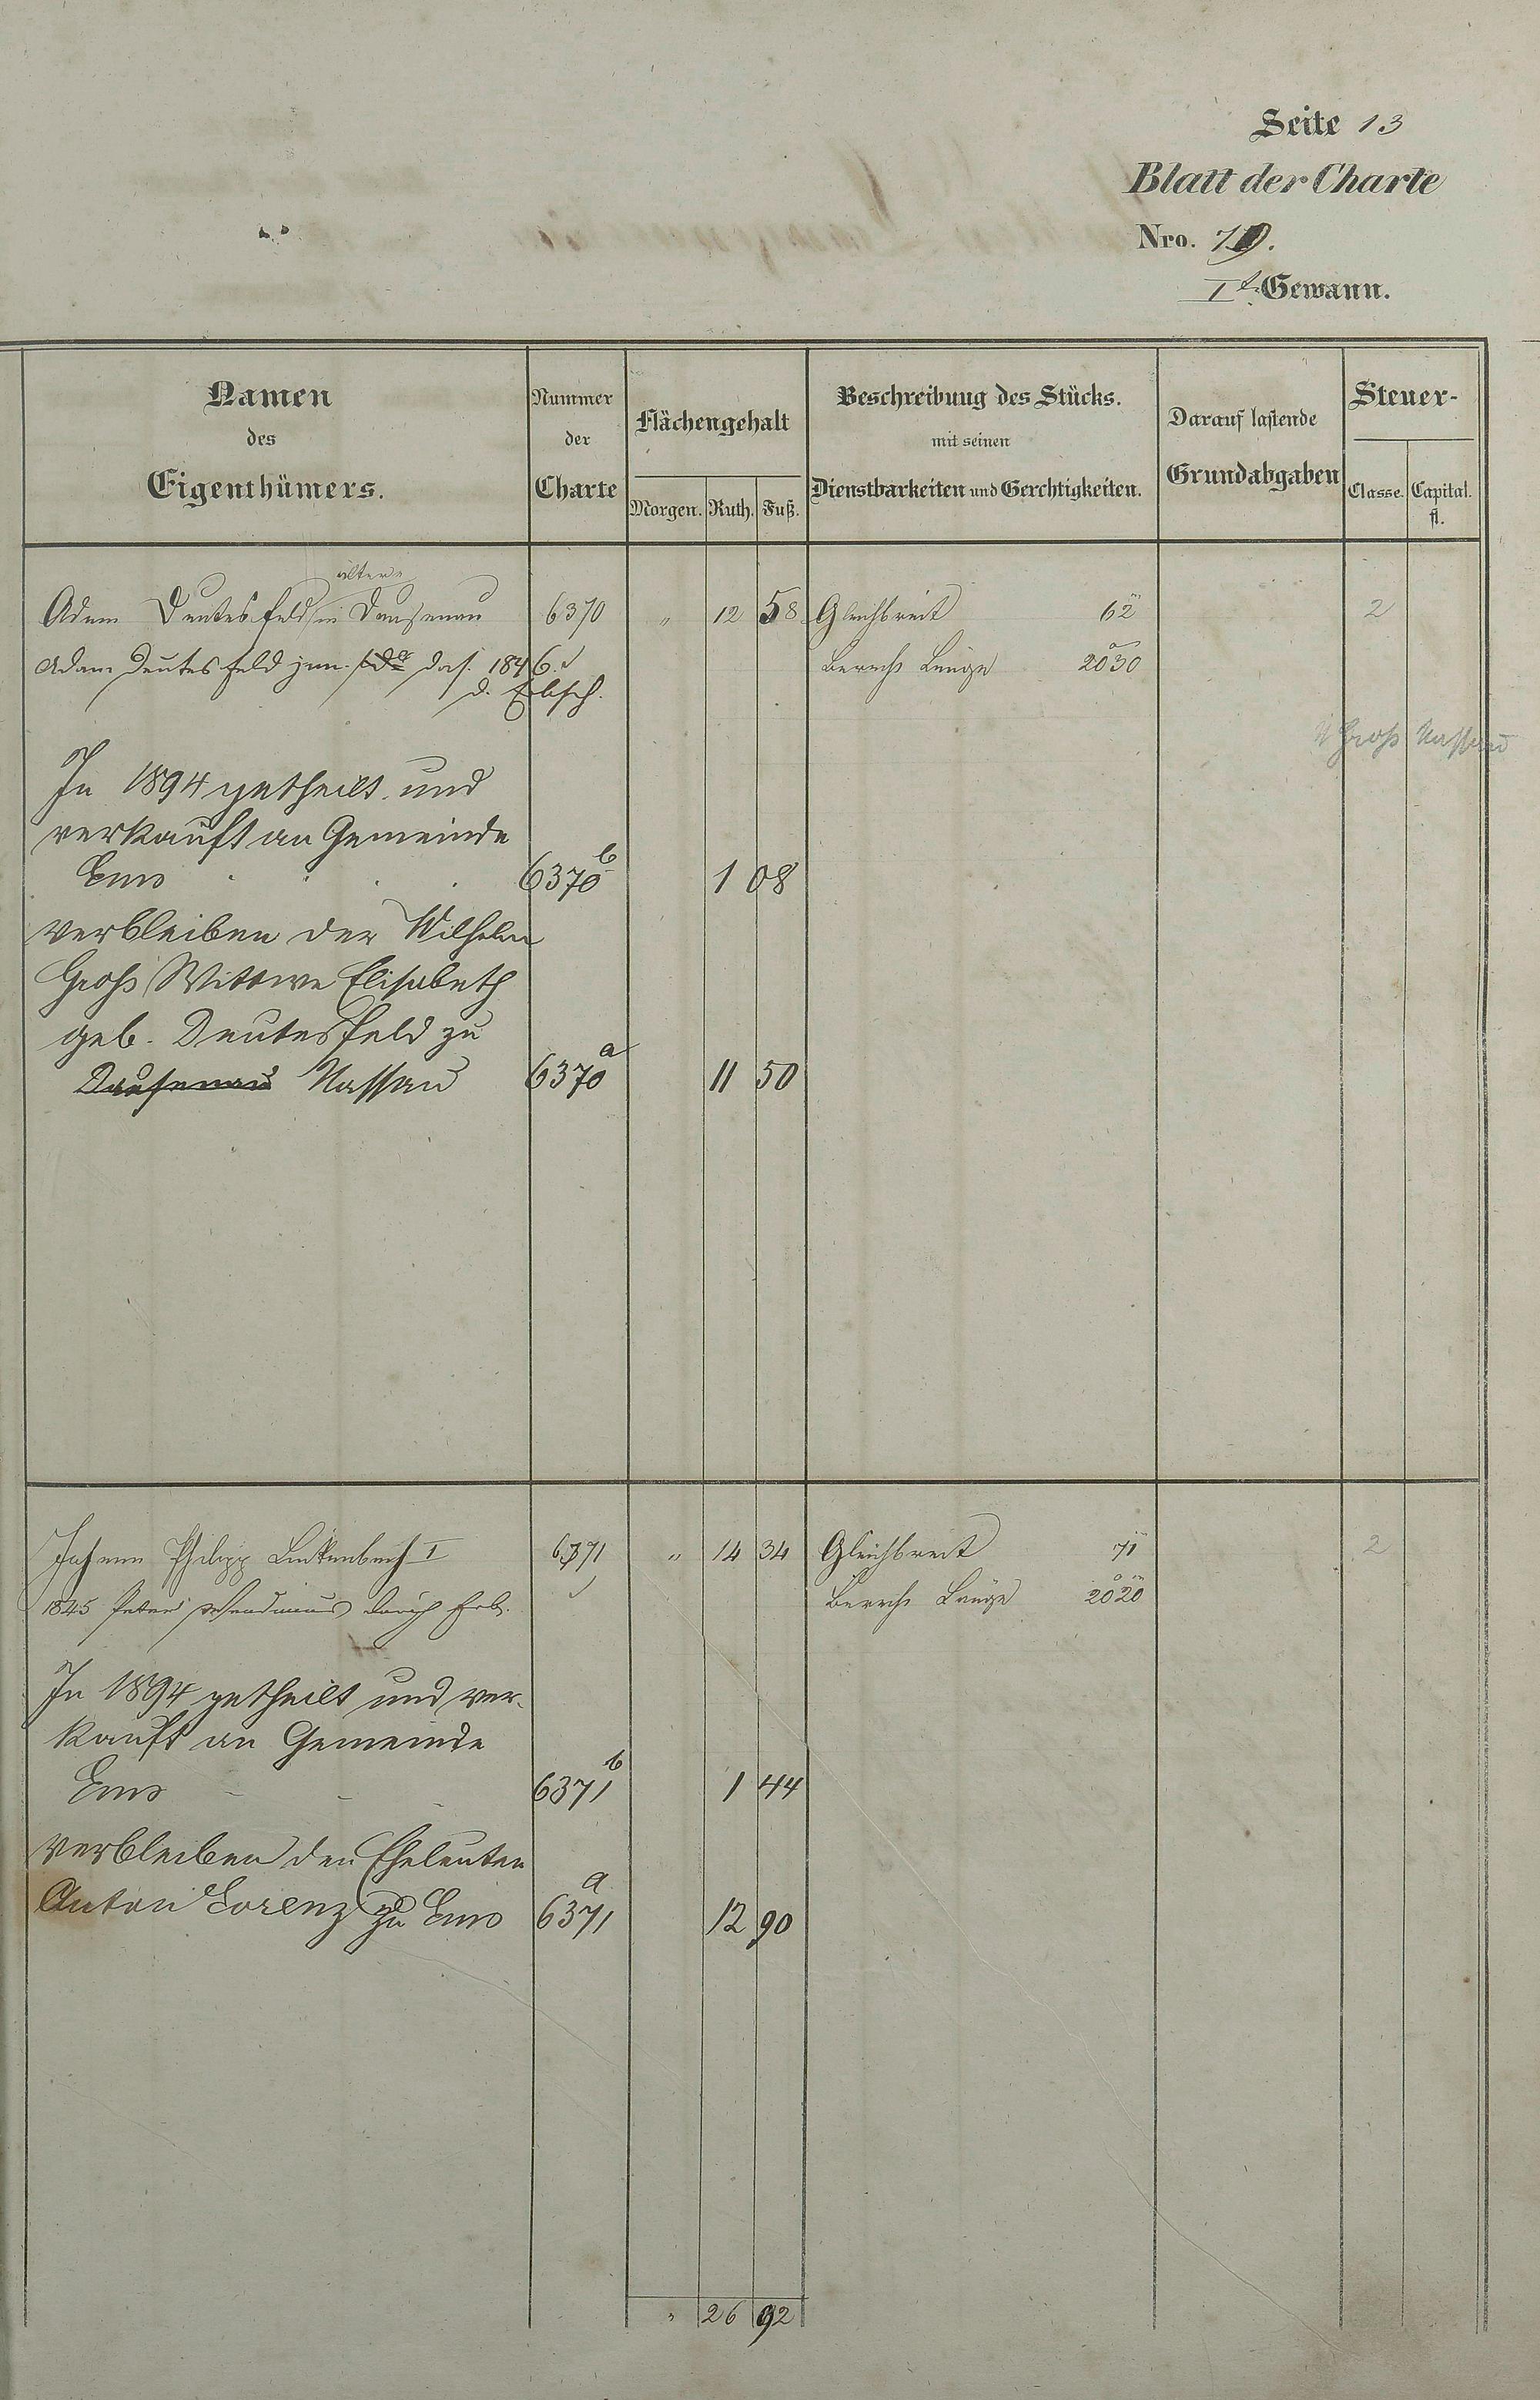 Seite 13
Blatt der Charte
Nro. 19.
I.t Gewann.
Namen des Eigenthümers.
Nummer der Charte
Flächengehalt
Morgen. Ruth. Fuß.
Beschreibung des Stücks. mit seinen Dienstbarkeiten und Gerchtigkeiten.
Darauf lastende Grundabgaben
Steuer-
Classe. Capital. fl.
älter
Adam Deutesfeld in Dausenau 6370 " 12 58 Gleichbreit 62 2
Adam Deutesfeld jun. das. 1846. Berech Länge 2030
d. Erbsch.
Groß Nassau
In 1894 getheilt und
verkauft an Gemeinde
Ems 6370 b 1 08
verbleiben der Wilhelm
Groß Wittwe Elisabeth
geb. Deutesfeld zu
Dausenau Nassau 6370 a 11 50
Johann Philipp Linkenbach I 6371 " 14 34 Gleichbreit 71 2
1845 Peter durch Erb. Berech Länge 2020
In 1894 getheilt und ver-
kauft an Gemeinde
Ems - - - 6371 b 1 44
verbleiben den Eheleuten
Anton Lorenz zu Ems 6371 a 12 90
" 26 92